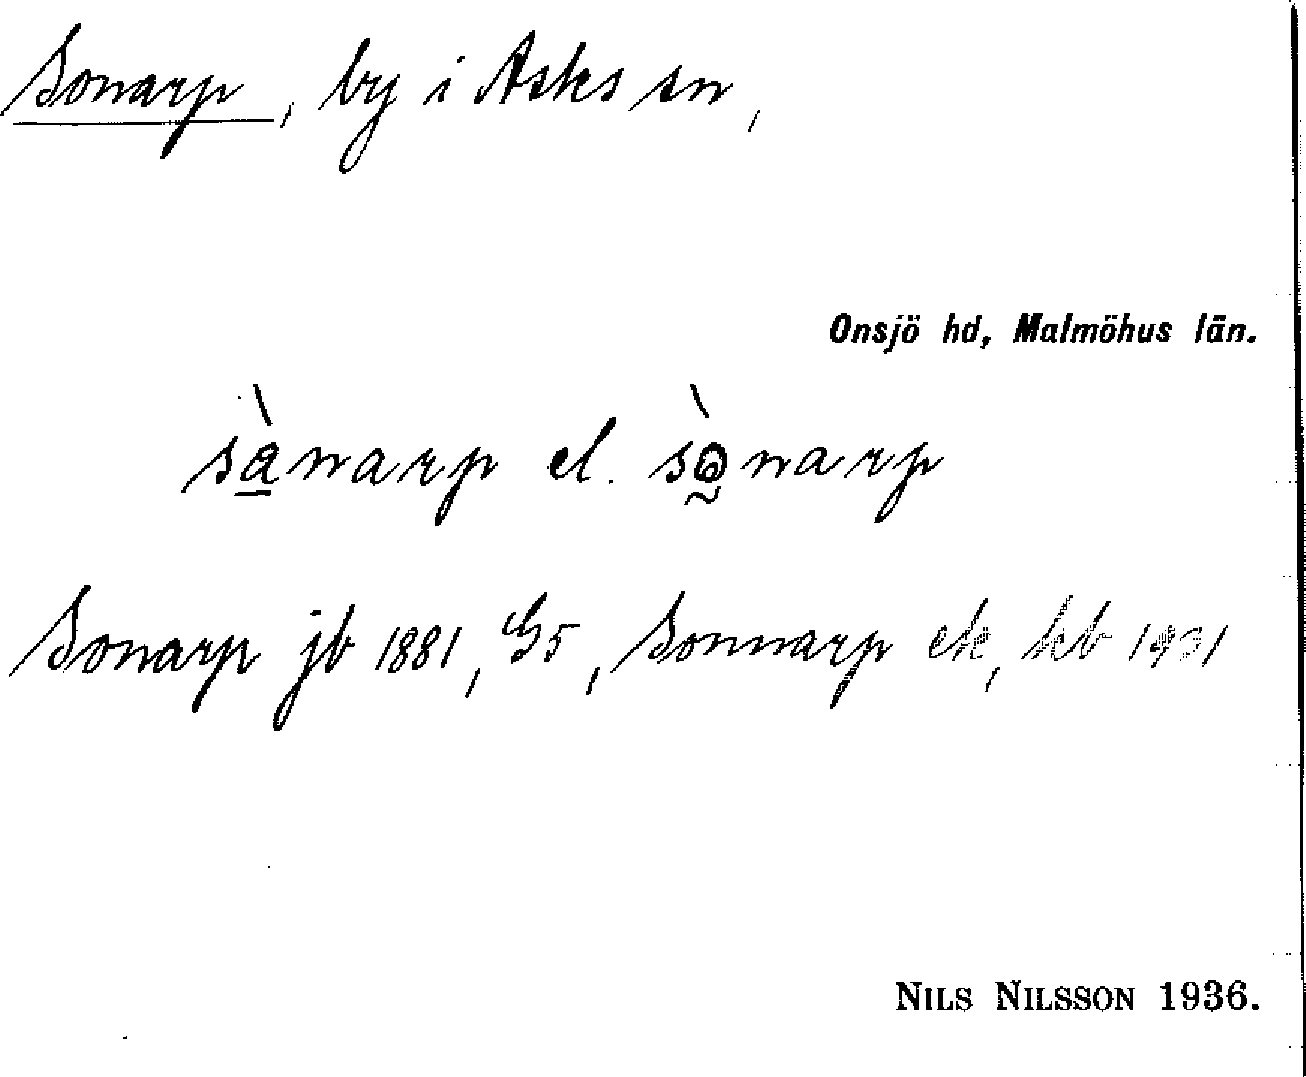 Sonarp, by i Asks sn,
Onsjö hd, Malmöhus län.
sànarp el. sònarp
Sonarp jb 1881, G5, Sonnarp ek, kb 1931
NILS NILSSON 1936.